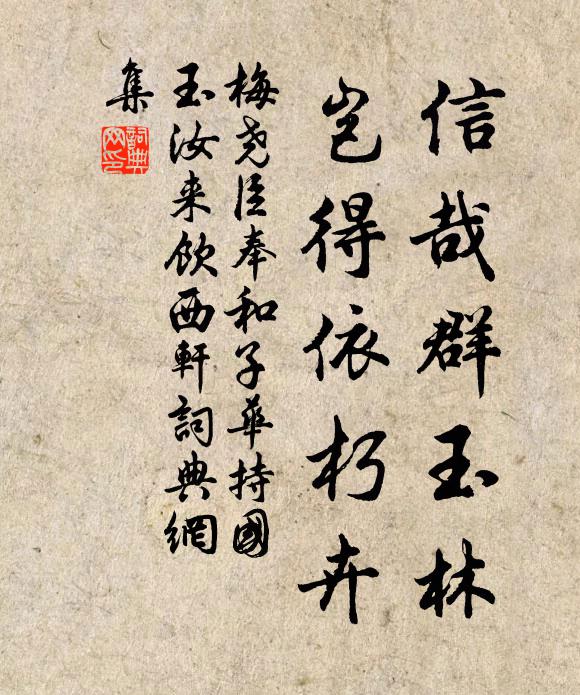 信哉群玉林
岂得依朽卉
梅尧臣奉和子華持國
玉汝来饮西軒詞典網
集
詞典网印